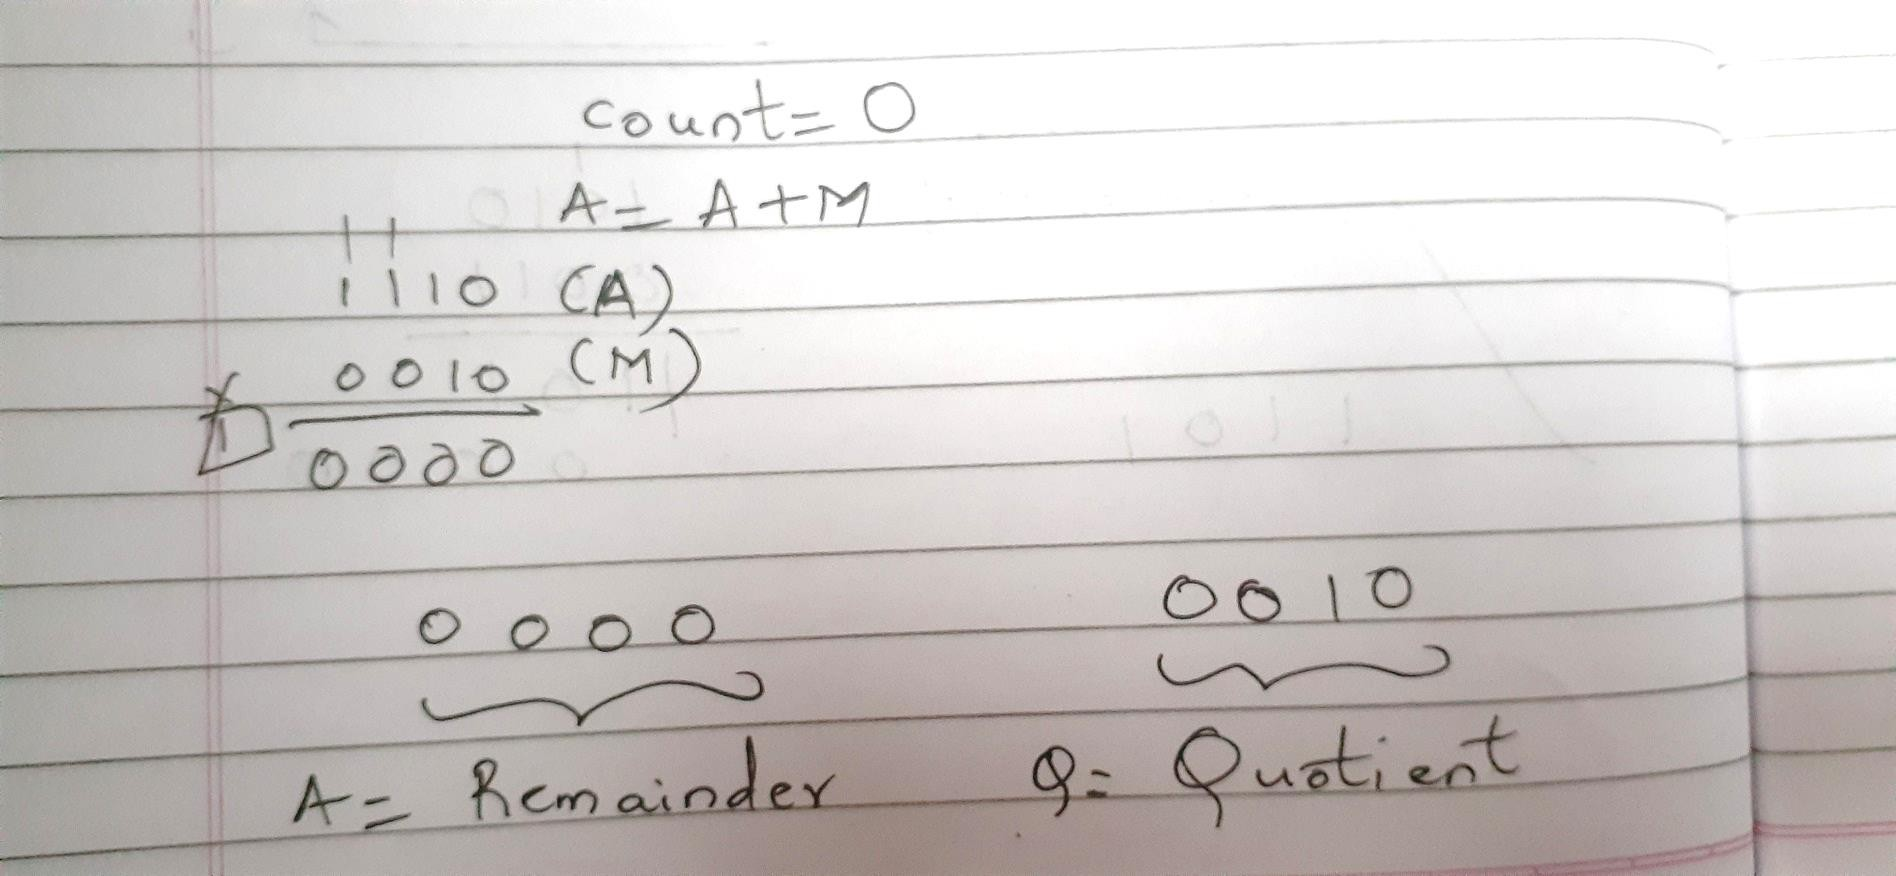 count= 0
A= A+M
1 1
1110 (A)
0010 (M)
1
0000
0000
0010
A= Remainder
Q= Quotient